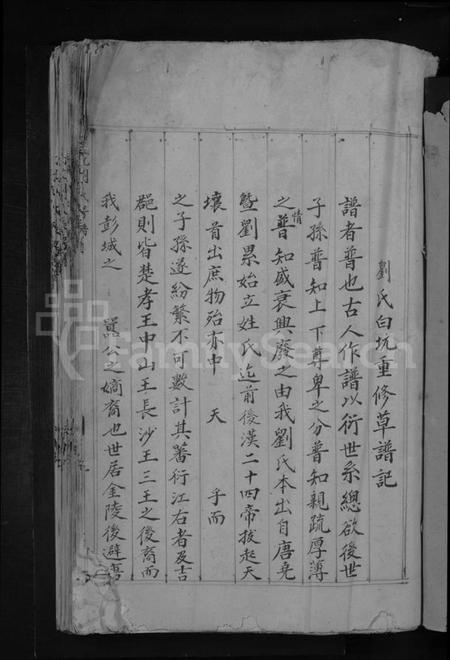 劉氏白坑重修草譜記
譜者普也古人作譜以衍世系總欲後世
子孫普知上下尊卑之分普知親疏厚薄
之情普知盛衰興廢之由我劉氏本出自唐堯
暨劉累始立姓氏迄前後漢二十四帝拔起天
壤首出庶物殆亦中 天 乎而
之子孫遂紛繁不可數計其蕃衍江右者及吉
郡則皆楚孝王中山王長沙王三王之後裔而
我彭城之 公之嫡裔也世居金陵後避唐
FamilySearch